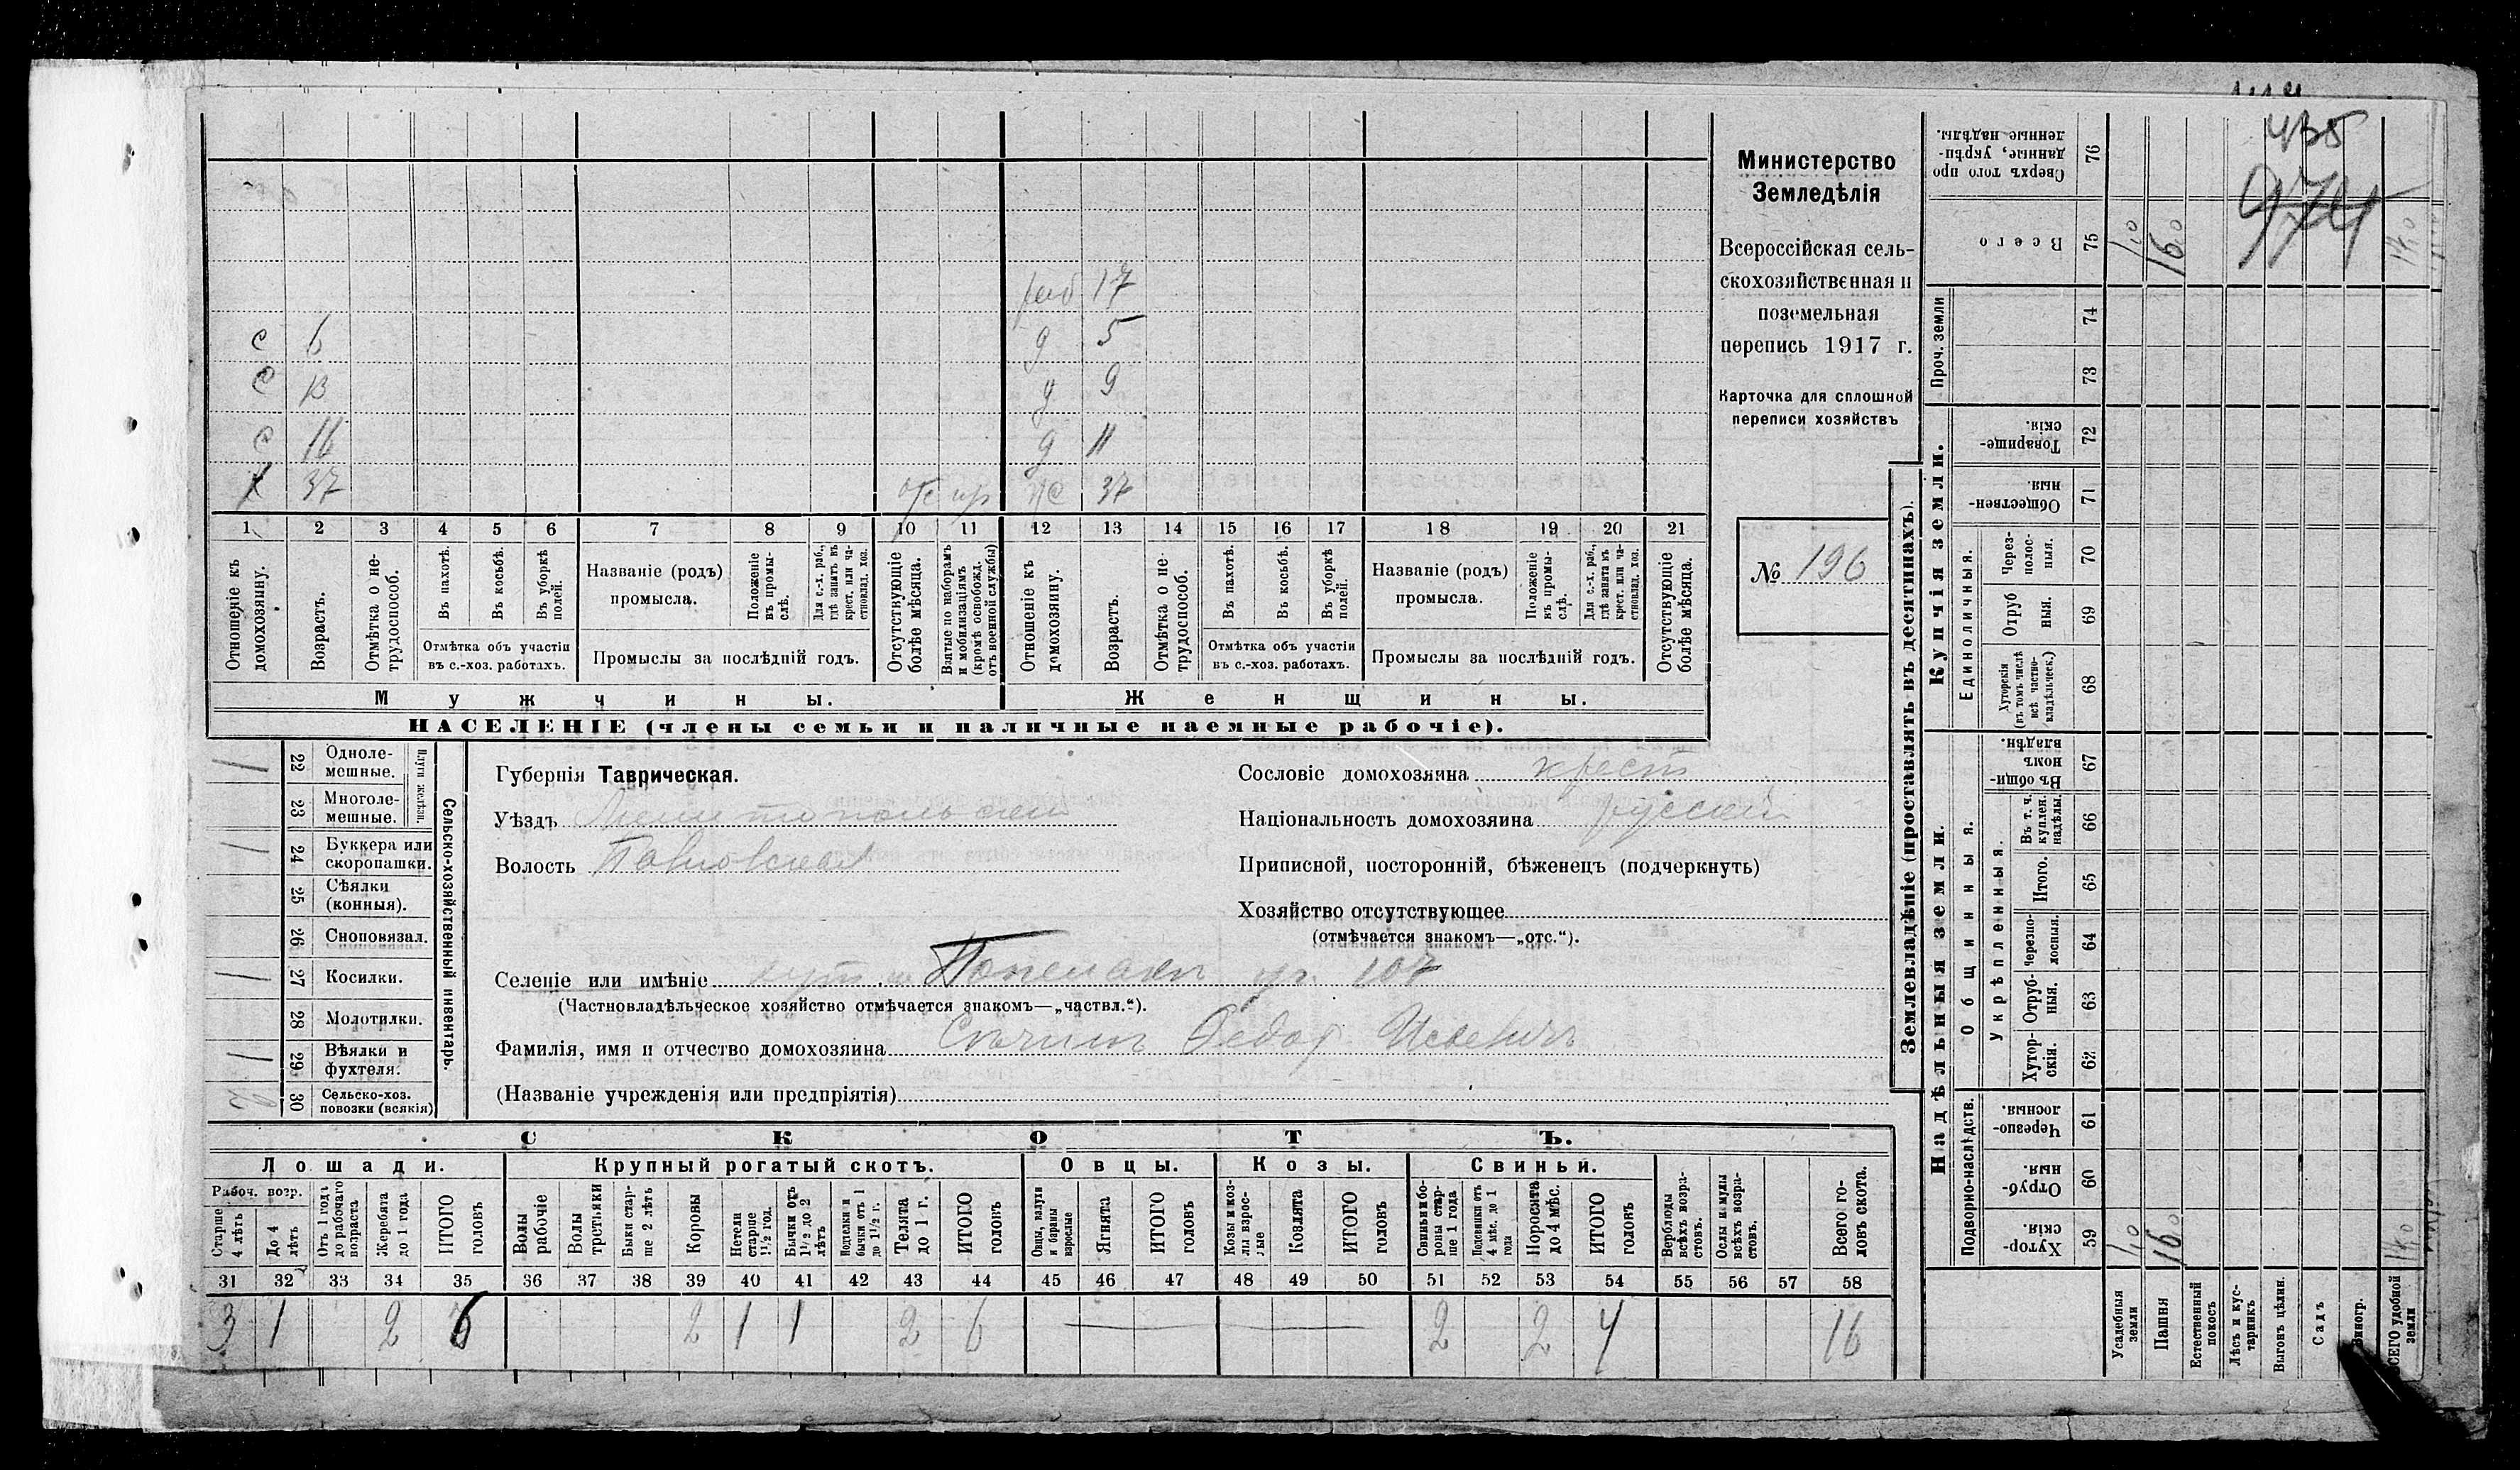 435
974
Министерство
Земледѣлія
Всероссійская сель-
скохозяйственная и
поземельная
перепись 1917 г.
Карточка для сплошной
переписи хозяйствъ
№ 196
раб 17
с 6 д 5
с 13 д 9
с 16 д 11
х 37 отс 37
1 2 3 4 5 6 7 8 9 10 11 12 13 14 15 16 17 18 19 20 21
Отношеніе къ домохозяину.
Возрастъ.
Отмѣтка о не-трудоспособ.
Въ пахотѣ.
Въ косьбѣ.
Въ уборкѣ полей.
Отмѣтка объ участіи
въ с.-хоз. работахъ.
Названіе (родъ)
промысла.
Положеніе въ промы-слѣ.
Для с.-х. раб., гдѣ занятъ въ крест. или ча-стновлад. хоз.
Промыслы за послѣдній годъ.
Отсутствующіе болѣе мѣсяца.
Взятые по наборамъ и мобилизаціямъ (кромѣ освобожд. отъ военной службы)
Отношеніе къ домохозяину.
Возрастъ.
Отмѣтка о не-трудоспособ.
Въ пахотѣ.
Въ косьбѣ.
Въ уборкѣ полей.
Отмѣтка объ участіи
въ с.-хоз. работахъ.
Названіе (родъ)
промысла.
Положеніе въ промы-слѣ.
Для с.-х. раб., гдѣ занята въ крест. или ча-стновлад. хоз.
Промыслы за послѣдній годъ.
Отсутствующіе болѣе мѣсяца.
Мужчины. Женщины.
НАСЕЛЕНІЕ (члены семьи и наличные наемные рабочіе).
Сельско-хозяйственный инвентарь.
Плуги желѣзн.
1 22 Одноле-мешные.
23 Многоле-мешные.
1 24 Буккера или скоропашки.
25 Сѣялки (конныя).
26 Сноповязал.
1 27 Косилки.
28 Молотилки.
1 29 Вѣялки и фухтеля.
30 Сельско-хоз. повозки (всякія)
Губернія Таврическая.
Уѣздъ Мелитопольскій
Волость Павловская
Сословіе домохозяина крест
Національность домохозяина русскій
Приписной, посторонній, бѣженецъ (подчеркнуть)
Хозяйство отсутствующее
(отмѣчается знакомъ—„отс.“).
Селеніе или имѣніе хут. 107
(Частновладѣльческое хозяйство отмѣчается знакомъ—„частвл.“).
Фамилія, имя и отчество домохозяина Федор
(Названіе учрежденія или предпріятія)
СКОТЪ.
Лошади. Крупный рогатый скотъ. Овцы. Козы. Свиньи.
Рабоч. возр.
Старше 4 лѣтъ
До 4 лѣтъ
Отъ 1 года до рабочаго возраста
Жеребята до 1 года
ИТОГО головъ
Волы рабочіе
Волы третьяки
Быки стар-ше 2 лѣтъ
Коровы
Нетели старше 1½ год.
Бычки отъ 1½ до 2 лѣтъ
Подтелки и бычки отъ 1 до 1½ г.
Телята до 1 г.
ИТОГО головъ
Овцы, валухи и бараны взрослые
Ягнята
ИТОГО головъ
Козы и коз-лы взрос-лые
Козлята
ИТОГО головъ
Свиньи и бо-ровы стар-ше 1 года
Подсвинки отъ 4 мѣс. до 1 года
Поросята до 4 мѣс.
ИТОГО головъ
Верблюды всѣхъ возра-стовъ.
Ослы и мулы всѣхъ возра-стовъ.
Всего го-ловъ скота.
31 32 33 34 35 36 37 38 39 40 41 42 43 44 45 46 47 48 49 50 51 52 53 54 55 56 57 58
3 1 2 6 2 1 1 2 6 2 2 4 16
Землевладѣніе (проставлять въ десятинахъ).
Купчія земли.
Надѣльныя земли.
Сверхъ того про-данные, укрѣп-ленные надѣлы. 76
Всего 75 1,0 16,0
Проч. земли 74 73
Товарище-скія. 72
Обществен-ныя. 71
Единоличныя.
Через-полос-ныя. 70
Отруб ныя. 69
Хуторскія (въ томъ числѣ всѣ частно-владѣльческ.) 68
Въ общин-номъ владѣн. 67
Общинныя.
Укрѣпленныя.
Въ т. ч. куплен. надѣлы. 66
Итого. 65
Черезпо-лосныя. 64
Отруб-ныя. 63
Хутор-скія. 62
Подворно-наслѣдств.
Черезпо-лосныя. 61
Отруб-ныя. 60
Хутор-скія. 59 1,0 16,0
Усадебныя земли
Пашня
Естественный покосъ
Лѣсъ и кус-тарникъ
Выгонъ цѣлин.
Садъ
Виногр.
ВСЕГО удобной земли